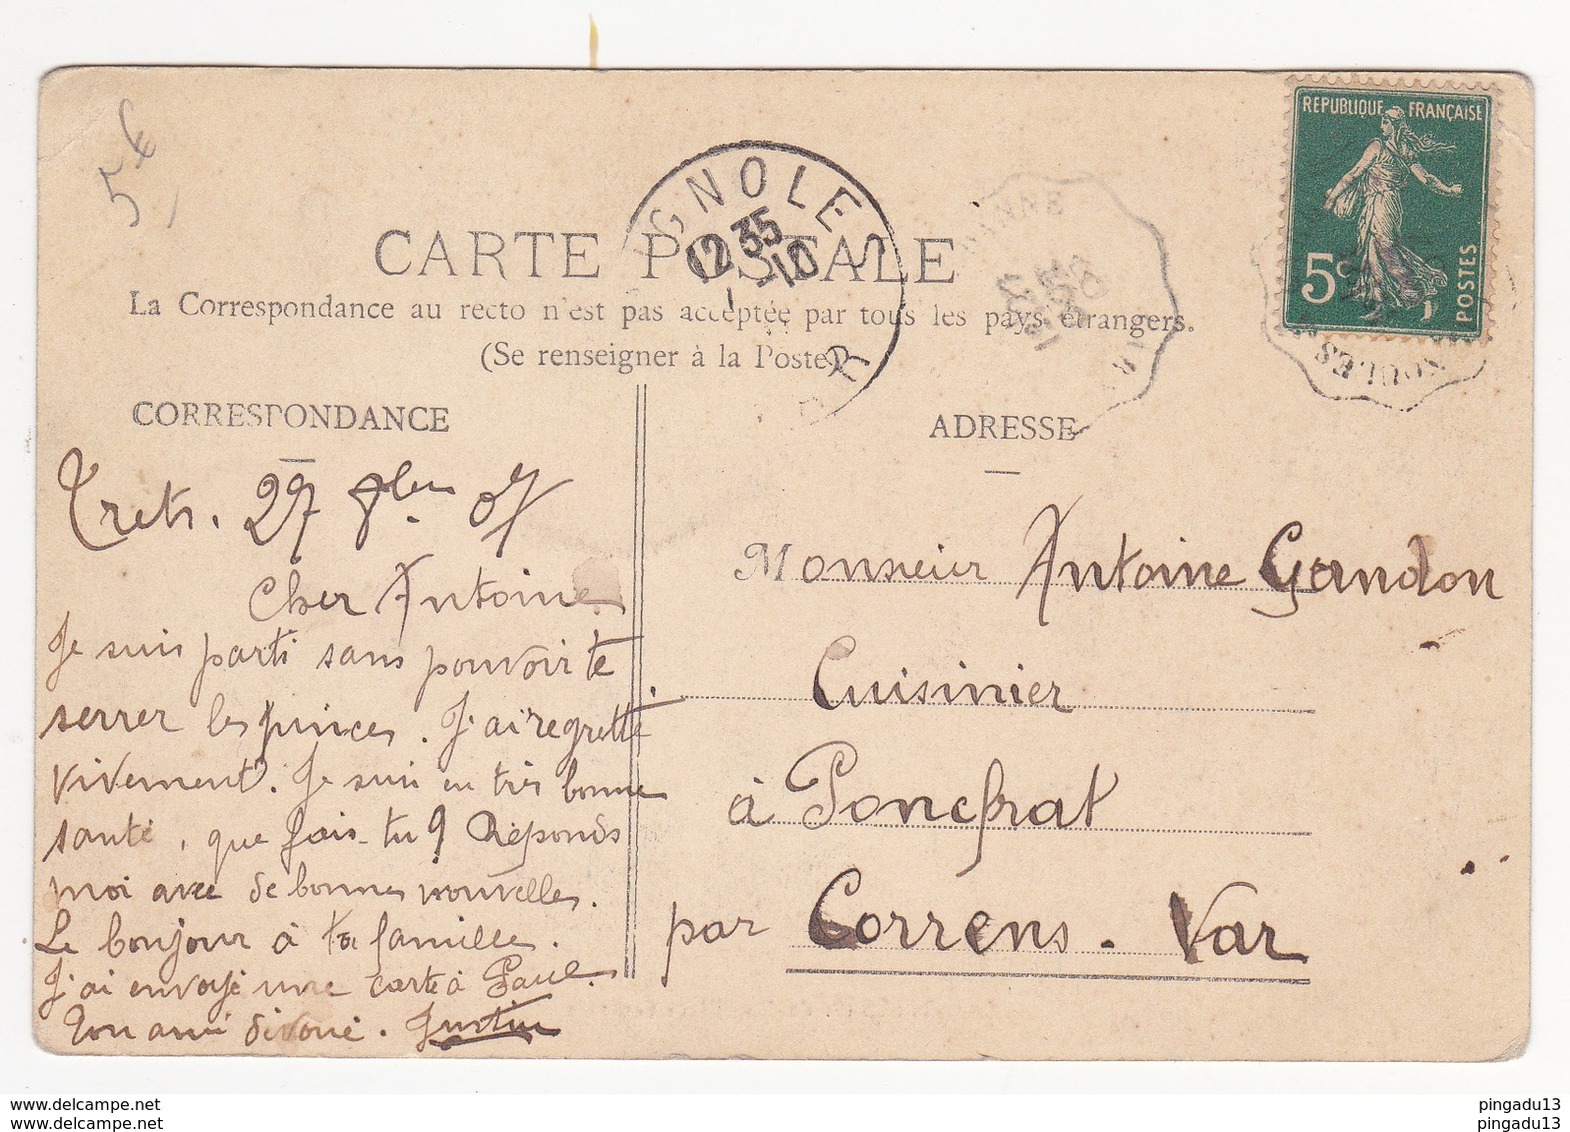 5€
REPUBLIQUE FRANÇAISE
5c
POSTES
GNOLES
12 35
1 -10
CARTE POSTALE
La Correspondance au recto n'est pas acceptée par tous les pays étrangers.
(Se renseigner à la Poste)
CORRESPONDANCE
ADRESSE
Trets. 27 8bre 07
Cher Antoine
Je suis parti sans pouvoir te
serrer les pinces. J'ai regretté
vivement. Je suis en très bonne
santé, que fais-tu? Réponds
moi avec de bonnes nouvelles.
Le bonjour à ta famille.
J'ai envoyé une carte à Paul.
Ton ami dévoué. Justin
Monsieur Antoine Gandon
Cuisinier
à Poncfrat
par Correns. Var
www.delcampe.net
www.delcampe.net
pingadu13
pingadu13